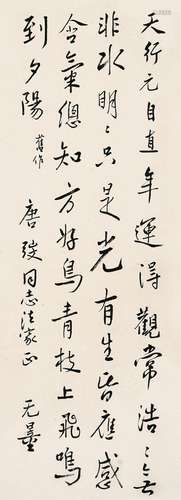 天行元自直年運得觀常浩〻無
非水明〻只是光有生皆應感
含氣總知方好鳥青枝上飛鳴
到夕陽 舊作 唐弢同志法家正 无量